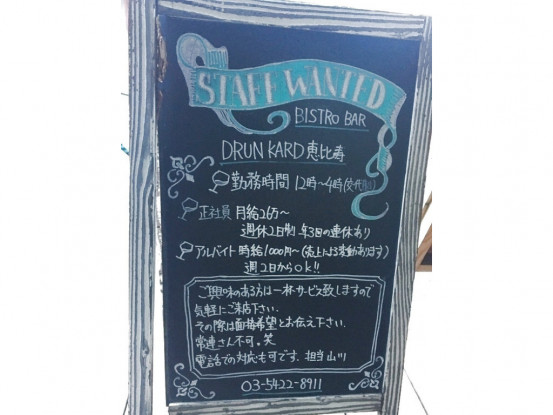 STAFF WANTED
BISTRO BAR
DRUN KARD 恵比寿
勤務時間 12時〜4時(交代制)
正社員 月給26万〜
週休2日制 年3日の連休あり
アルバイト 時給1000円〜(売上による変動あります)
週2日からok!!
ご興味のある方は一杯サービス致しますので
気軽にご来店下さい.
その際は面接希望とお伝え下さい.
常連さん不可。笑
電話での対応も可です. 担当 山川
03-5422-8911